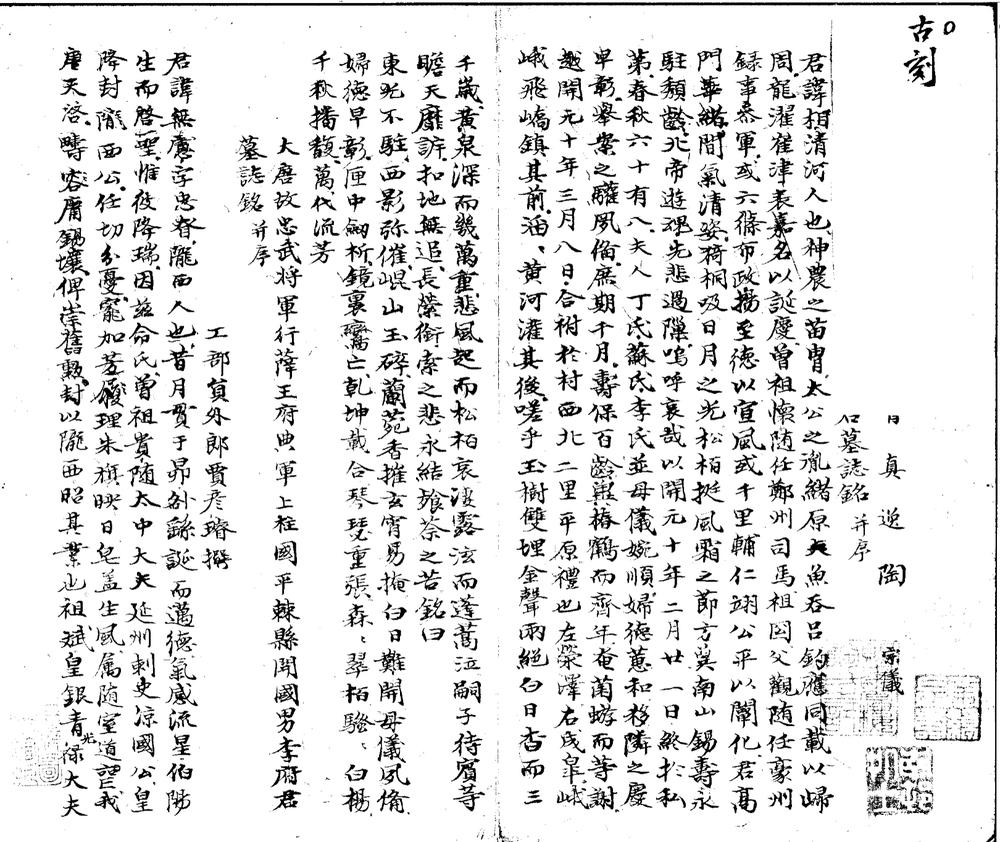 古刻
日真逸陶
宗儀
石墓誌銘并序
君諱相清河人也神農之苗胄太公之胤緒原夫魚吞呂鈞應同載以歸
周龍濯崔津表嘉名以誕慶曾祖懷隨任鄭州司馬祖囙父觀隨任豪州
錄事叅軍或六條布政揚至德以宣風或千里輔仁翊公平以闡化君髙
門華緒間氣清姿猗桐吸日月之光松柏挺風霜之節方冀南山錫壽永
駐頹齡北帝遊魂先悲過隟嗚呼哀哉以開元十年二月廿一日終於私
第春秋六十有八夫人丁氏蘇氏李氏並母儀婉順婦德蕙和移隣之慶
早彰舉案之驩夙偹庶期千月壽保百齡與椿鶴而齊年奄菌蝣而等謝
越開元十年三月八日合祔於村西北二里平原禮也左滎澤右戍皐峨
峨飛嶠鎮其前滔黄河灌其後嗟乎玉樹雙埋金聲兩絕白日杳而三
千嵗黄泉深而幾萬重悲風起而松柏哀淒露泫而蓬蒿泣嗣子待賓等
瞻天靡訴扣地無追長縈銜索之悲永結飱荼之苦銘曰
東光不駐西影弥催崐山玉碎蘭菀香摧玄宵易掩白日難開母儀夙偹
婦德早彰匣中劒析鏡裏鸞亡乾坤載合琴瑟重張森〻翠柏騷〻白楊
千秋播馥萬代流芳
大唐故忠武将軍行薛王府典軍上柱國平棘縣開國男李府君
墓誌銘并序
工部貟外郎賈彦璿撰
君諱無慮字忠眷隴西人也昔月貫于昴咎繇誕而邁德氣感流星伯陽
生而啓聖惟彼降瑞因兹命氏曾祖貴随太中大夫延州刺史涼國公皇
降封隴西公任切分憂寵加芳𡳐理朱旗映日皂盖生風属随室道喪我
唐天啓疇咨厝錫壤俾崇舊勲封以隴西昭其業也祖斌皇銀青光禄大夫